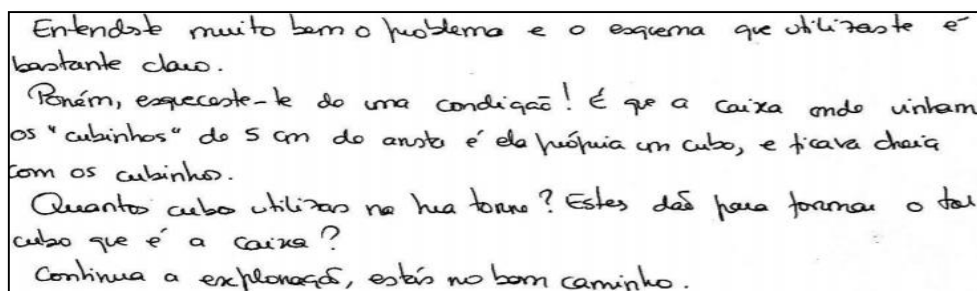 Entendeste muito bem o problema e o esquema que utilizaste é
bastante claro.
Porém, esqueceste-te de uma condição! É que a caixa onde vinham
os "cubinhos" de 5 cm de aresta é ela própria um cubo, e ficava cheia
com os cubinhos.
Quantos cubos utilizas na tua torre? Estes dão para formar o tal
cubo que é a caixa?
Continua a exploração, estás no bom caminho.